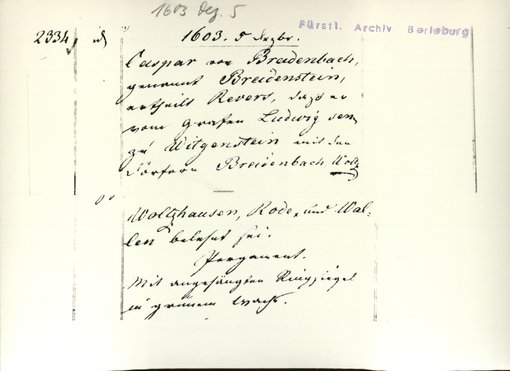 1603 Dez. 5
Fürstl. Archiv Berleburg
2334. 1603. 5 Dezbr.
Caspar von Breidenbach,
genannt Breidenstein,
ertheilt Revers, daß er
vom Grafen Ludwig sen.
zu Witgenstein mit den
Dörfern Breidenbach Wolz
Wolzhausen, Rode, und Wal-
len belehnt sei.
Pergament.
Mit angehängten Ringsiegel
in grünem Wachs.